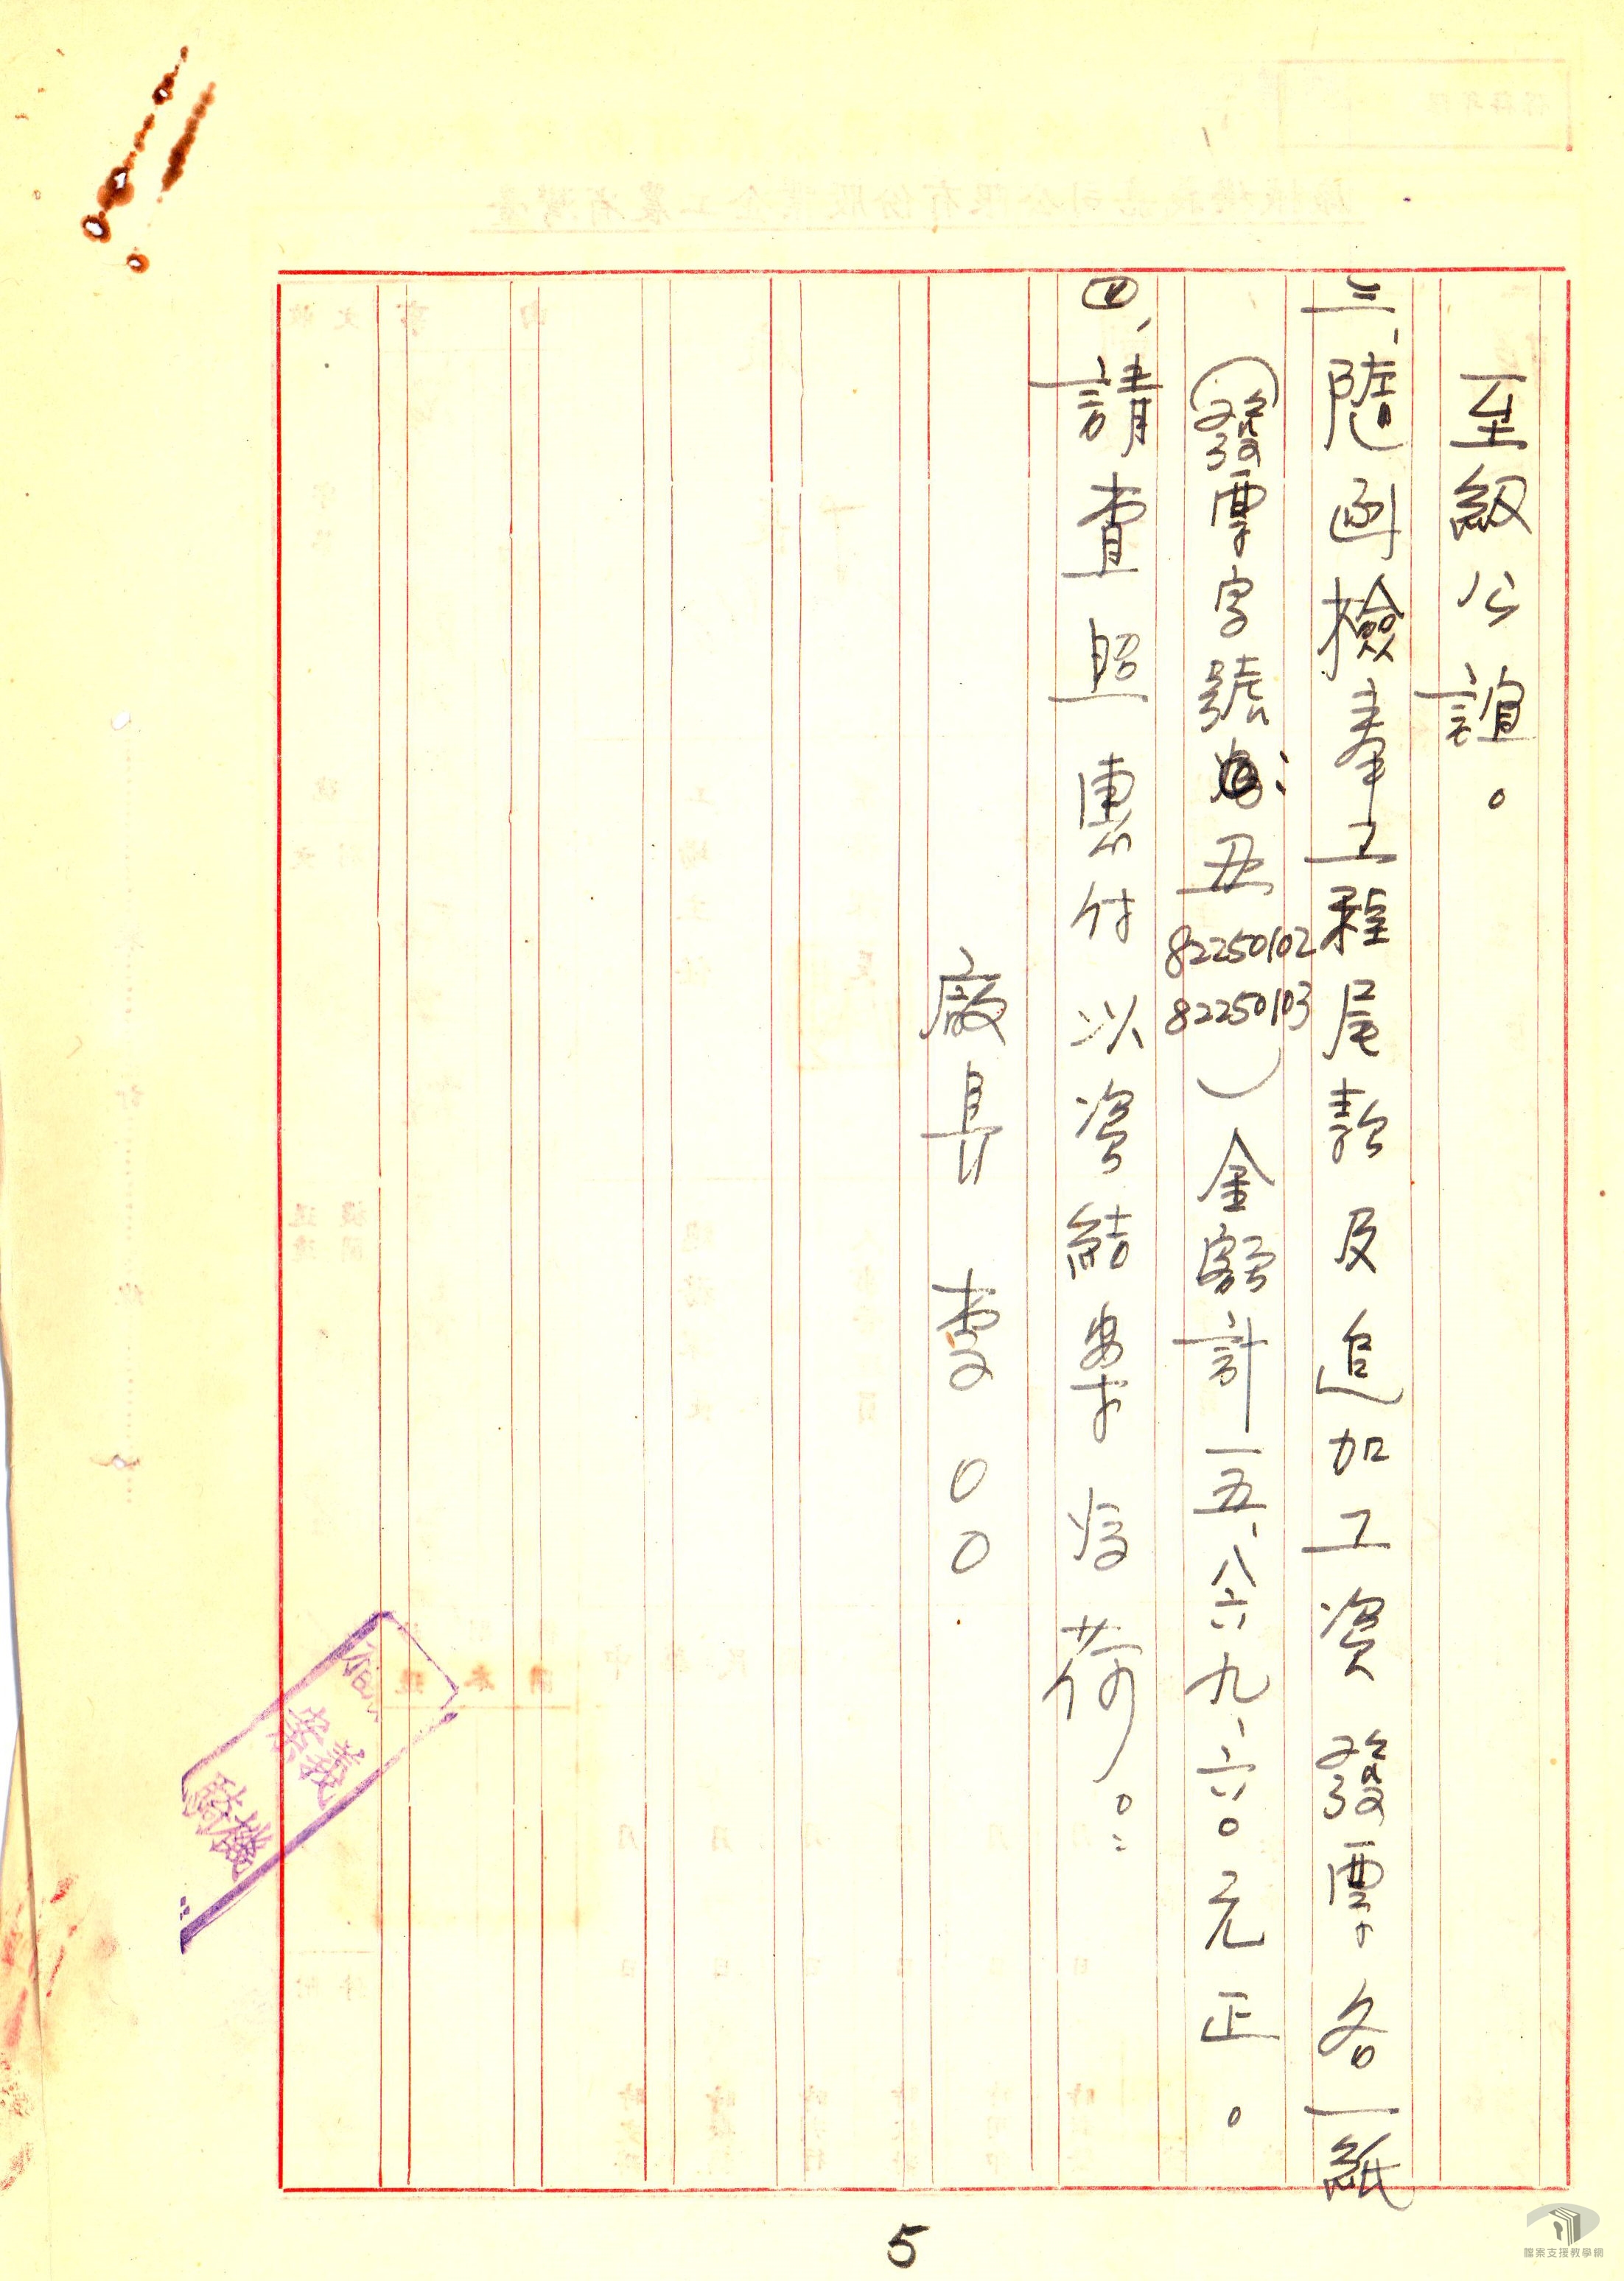 至級公誼。
三、隨函檢奉工程尾款及追加工資發票各一紙
(發票字號:丑82250102
82250103)金額計一五、八六九、六〇元正。
四、請查照惠付以資結案為荷。
廠長 李〇〇
嘉義
騎機
5
檔案支援教學網